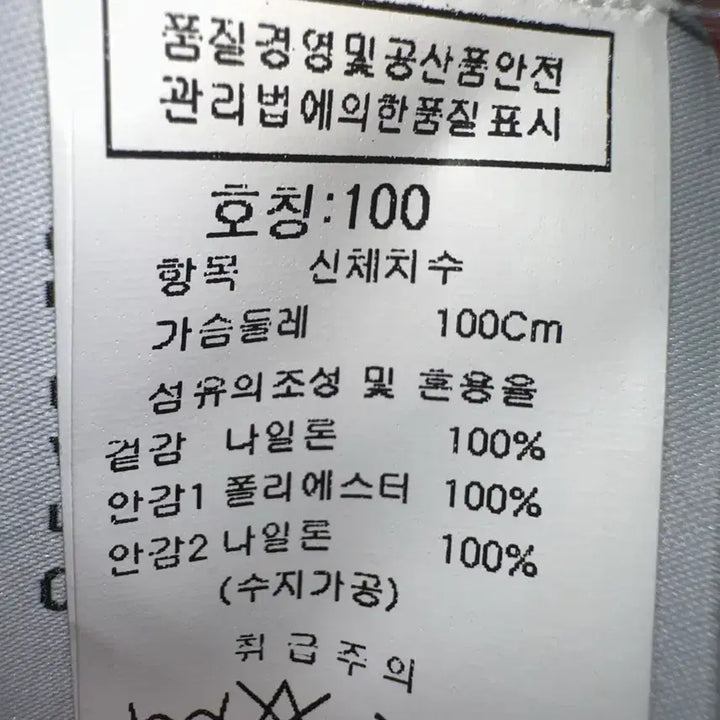 품질경영및공산품안전
관리법에의한품질표시
호칭:100
항목 신체치수
가슴둘레 100Cm
섬유의조성 및 혼용율
겉감 나일론 100%
안감1 폴리에스터 100%
안감2 나일론 100%
(수지가공)
취급주의